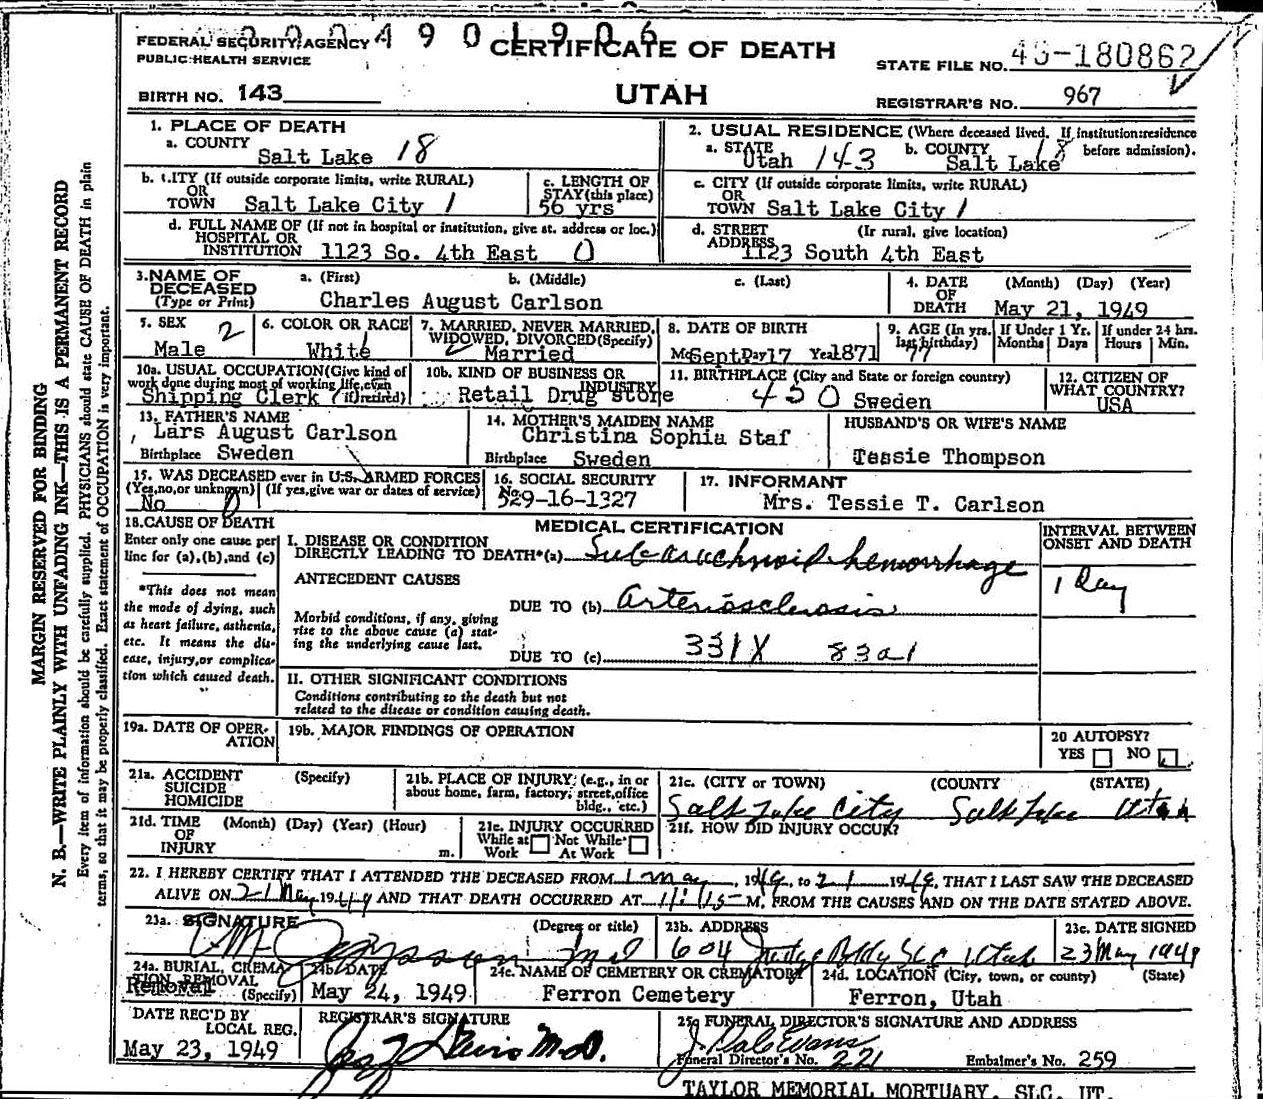 FEDERAL SECURITY AGENCY
PUBLIC HEALTH SERVICE
4901906
CERTIFICATE OF DEATH
STATE FILE NO. 180862
BIRTH NO. 143
UTAH
REGISTRAR'S NO. 967
1. PLACE OF DEATH
a. COUNTY
Salt Lake 18
2. USUAL RESIDENCE (Where deceased lived. If institution: residence before admission).
a. STATE Utah 143 b. COUNTY Salt Lake 18
b. CITY (If outside corporate limits, write RURAL)
OR
TOWN Salt Lake City 1
c. LENGTH OF STAY (this place)
56 yrs
c. CITY (If outside corporate limits, write RURAL)
OR
TOWN Salt Lake City 1
d. FULL NAME OF (If not in hospital or institution, give st. address or loc.)
HOSPITAL OR
INSTITUTION 1123 So. 4th East 0
d. STREET ADDRESS (If rural, give location)
1123 South 4th East
3. NAME OF DECEASED
(Type or Print)
a. (First) b. (Middle) c. (Last)
Charles August Carlson
4. DATE OF DEATH (Month) (Day) (Year)
May 21, 1949
5. SEX 2
Male
6. COLOR OR RACE
White
7. MARRIED, NEVER MARRIED, WIDOWED, DIVORCED (Specify)
2 Married
8. DATE OF BIRTH
Mo Sept Day 17 Year 1871
9. AGE (In yrs. last birthday)
77
If Under 1 Yr.
Months Days
If under 24 hrs.
Hours Min.
10a. USUAL OCCUPATION (Give kind of work done during most of working life, even if retired)
Shipping Clerk
10b. KIND OF BUSINESS OR INDUSTRY
Retail Drug store
11. BIRTHPLACE (City and State or foreign country)
450 Sweden
12. CITIZEN OF WHAT COUNTRY?
USA
13. FATHER'S NAME
Lars August Carlson
Birthplace Sweden
14. MOTHER'S MAIDEN NAME
Christina Sophia Staf
Birthplace Sweden
HUSBAND'S OR WIFE'S NAME
Tessie Thompson
15. WAS DECEASED ever in U.S. ARMED FORCES
(Yes, no, or unknown) (If yes, give war or dates of service)
No 0
16. SOCIAL SECURITY No.
529-16-1327
17. INFORMANT
Mrs. Tessie T. Carlson
18. CAUSE OF DEATH
Enter only one cause per line for (a), (b), and (c)
*This does not mean the mode of dying, such as heart failure, asthenia, etc. It means the disease, injury, or complication which caused death.
MEDICAL CERTIFICATION
I. DISEASE OR CONDITION
DIRECTLY LEADING TO DEATH*(a) Subarachnoid hemorrhage
ANTECEDENT CAUSES
DUE TO (b) Arteriosclerosis
Morbid conditions, if any, giving rise to the above cause (a) stating the underlying cause last.
331X 83a1
DUE TO (c)
INTERVAL BETWEEN ONSET AND DEATH
1 Day
II. OTHER SIGNIFICANT CONDITIONS
Conditions contributing to the death but not related to the disease or condition causing death.
19a. DATE OF OPERATION
19b. MAJOR FINDINGS OF OPERATION
20 AUTOPSY?
YES NO
21a. ACCIDENT
SUICIDE
HOMICIDE
(Specify)
21b. PLACE OF INJURY (e.g., in or about home, farm, factory, street, office bldg., etc.)
21c. (CITY or TOWN) (COUNTY (STATE)
Salt Lake City Salt Lake Utah
21d. TIME OF INJURY (Month) (Day) (Year) (Hour)
m.
21e. INJURY OCCURRED
While at Work Not While At Work
21f. HOW DID INJURY OCCUR?
22. I HEREBY CERTIFY THAT I ATTENDED THE DECEASED FROM 1 May, 1949, to 21 1949, THAT I LAST SAW THE DECEASED
ALIVE ON 21 May 1949 AND THAT DEATH OCCURRED AT 11:15 M, FROM THE CAUSES AND ON THE DATE STATED ABOVE.
23a. SIGNATURE (Degree or title)
MD
23b. ADDRESS
604 Judge Bldg SLC Utah
23c. DATE SIGNED
23 May 1949
24a. BURIAL, CREMATION, REMOVAL (Specify)
Removal
24b. DATE
May 24, 1949
24c. NAME OF CEMETERY OR CREMATORY
Ferron Cemetery
24d. LOCATION (City, town, or county) (State)
Ferron, Utah
DATE REC'D BY LOCAL REG.
May 23, 1949
REGISTRAR'S SIGNATURE
M.D.
25a FUNERAL DIRECTOR'S SIGNATURE AND ADDRESS
J. Dale Evans
Funeral Director's No. 221 Embalmer's No. 259
TAYLOR MEMORIAL MORTUARY, SLC, UT.
MARGIN RESERVED FOR BINDING
N. B.—WRITE PLAINLY WITH UNFADING INK—THIS IS A PERMANENT RECORD
Every item of information should be carefully supplied. PHYSICIANS should state CAUSE OF DEATH in plain
terms, so that it may be properly classified. Exact statement of OCCUPATION is very important.